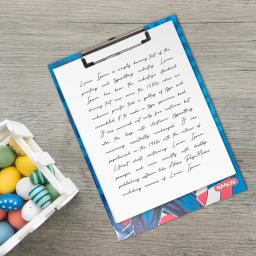 Lorem Ipsum is simply dummy text of the
printing and typesetting industry. Lorem
Ipsum has been the industry's standard
dummy text ever since the 1500s, when an
unknown printer took a galley of type and
scrambled it to make a type specimen book.
It has survived not only five centuries, but
also the leap into electronic typesetting,
remaining essentially unchanged. It was
popularised in the 1960s with the release of
Letraset sheets containing Lorem Ipsum
passages, and more recently with desktop
publishing software like Aldus PageMaker
including versions of Lorem Ipsum.